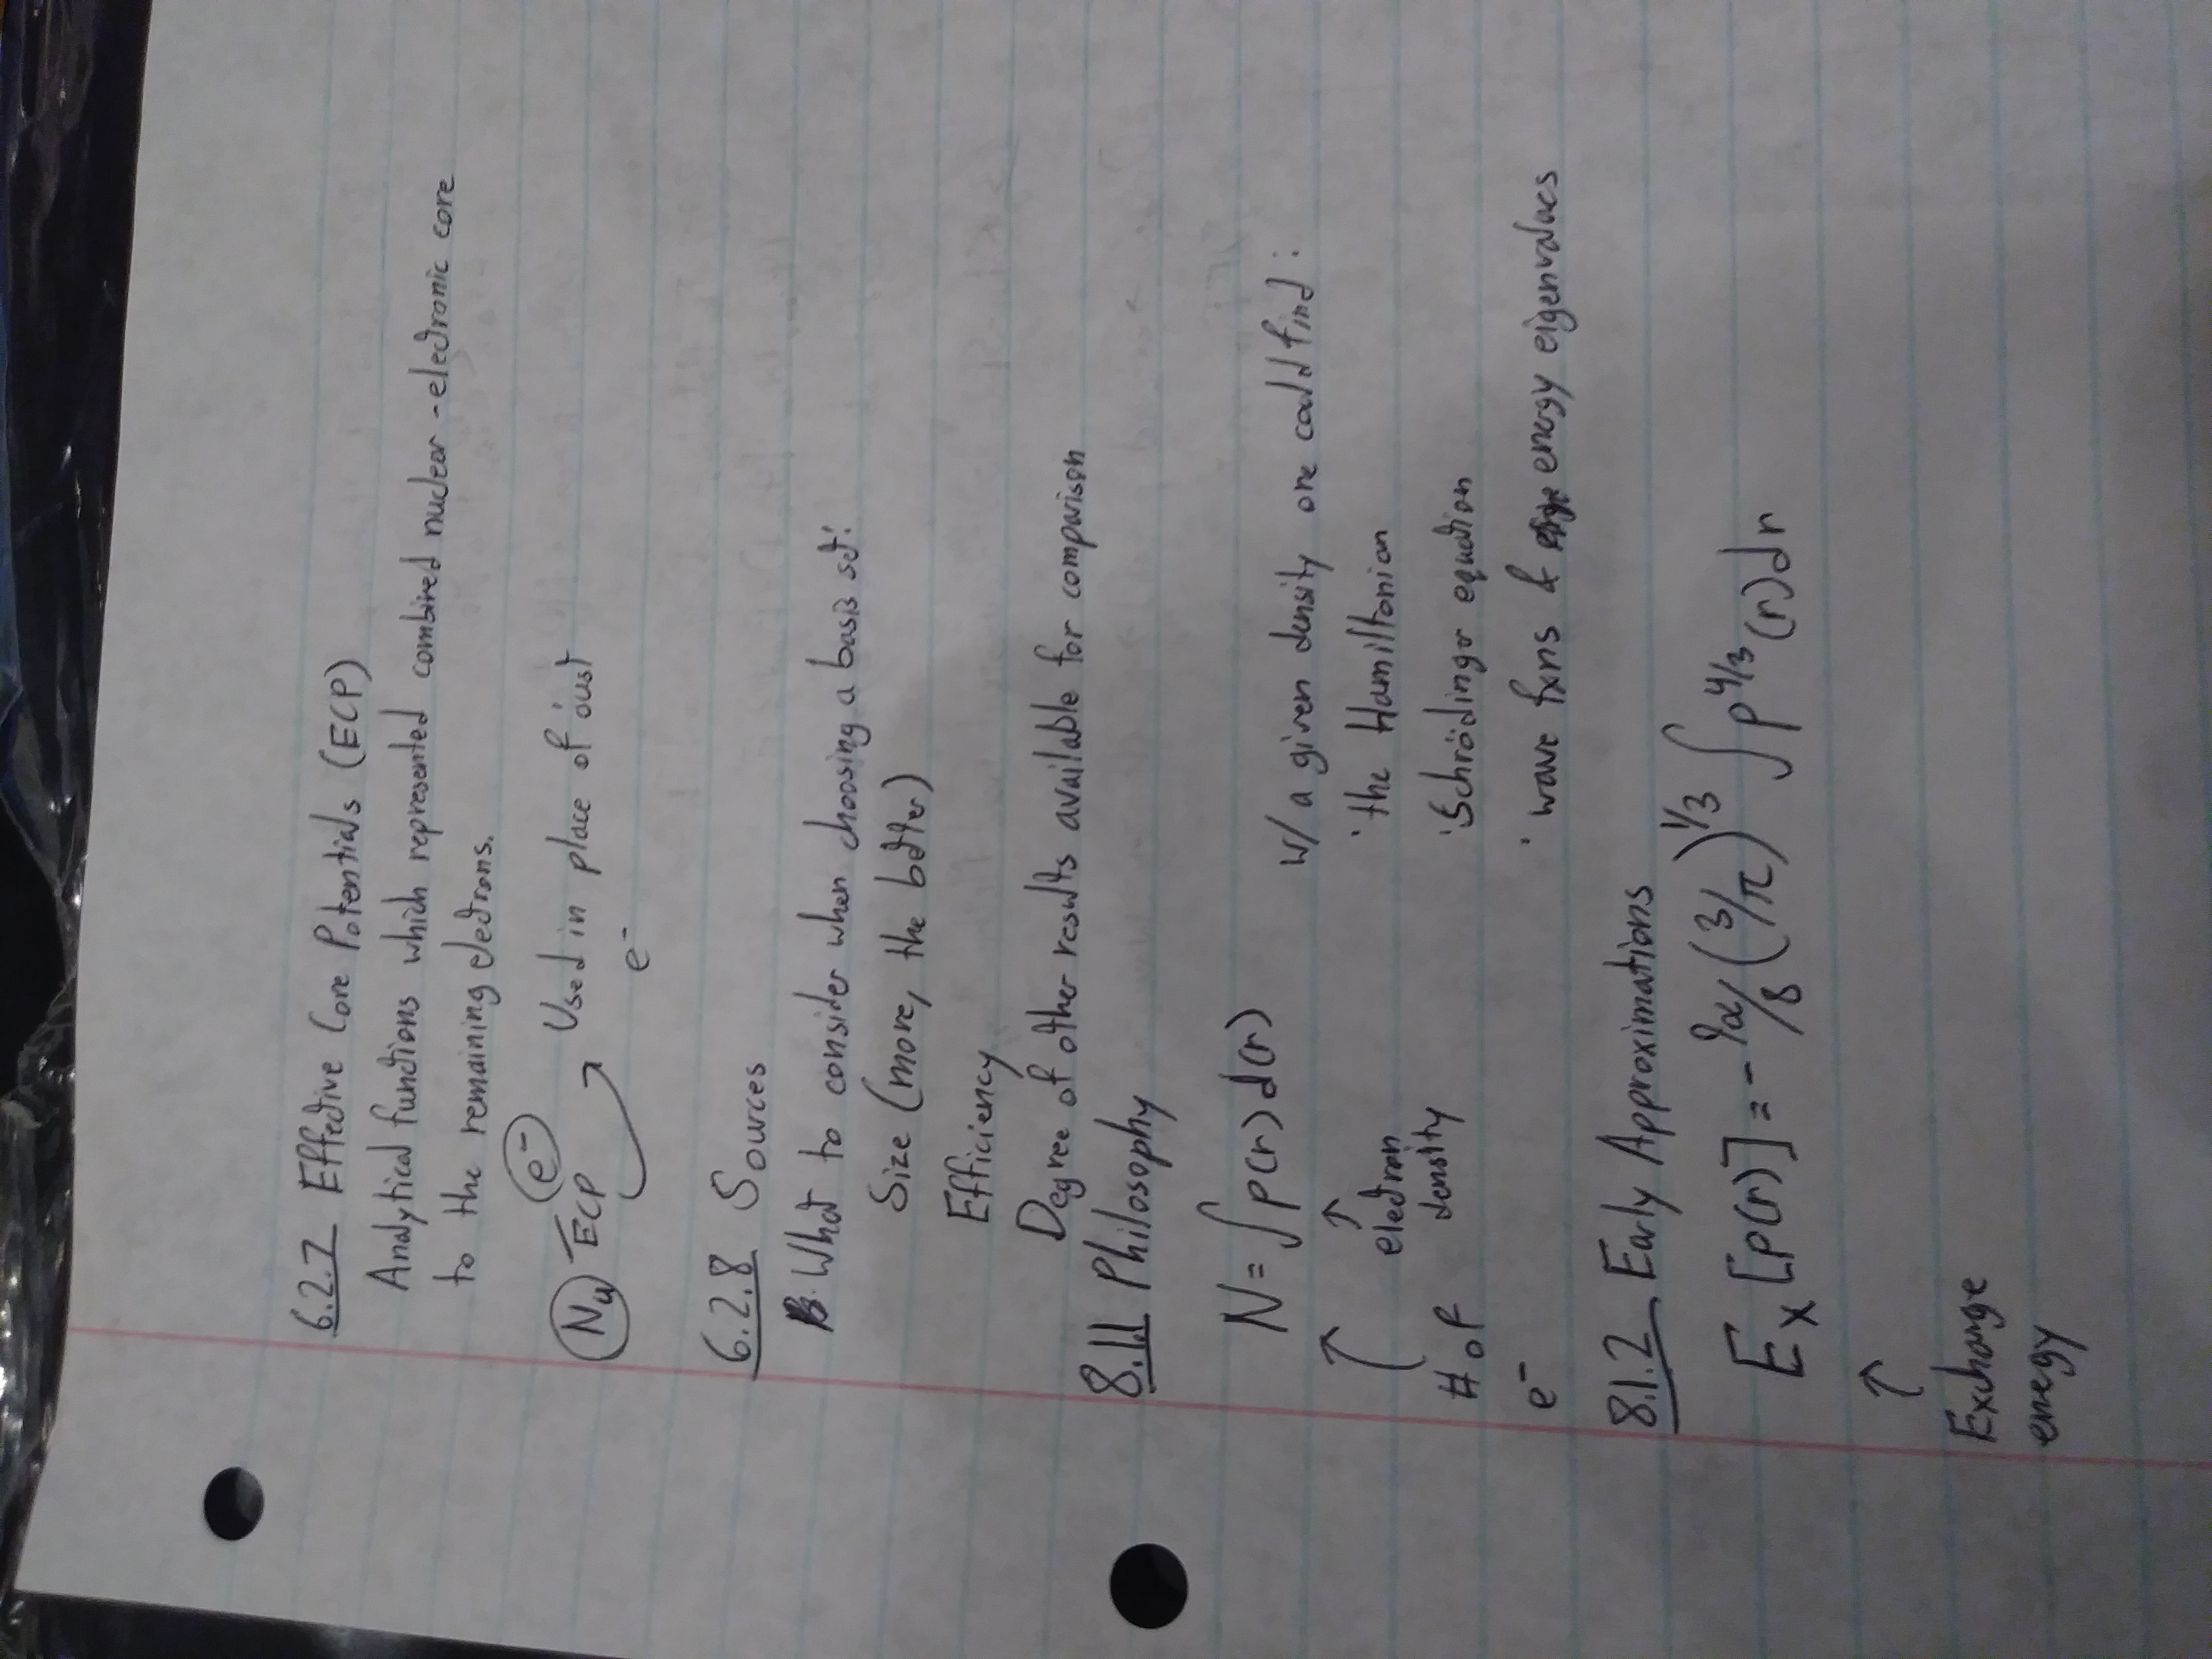 6.2.7 Effective Core Potentials (ECP)
Analytical functions which represented combined nuclear-electronic core
to the remaining electrons.
e⁻
Nu ECP Used in place of just
e⁻
6.2.8 Sources
What to consider when choosing a basis set:
Size (more, the better)
Efficiency
Degree of other results available for comparison
8.1.1 Philosophy
N = ∫ρ(r)d(r)
w/ a given density one could find:
↑ ↑
electron
density
# of
e⁻
· the Hamiltonian
· Schrödinger equation
· wave fxns & energy eigenvalues
8.1.2 Early Approximations
Eₓ[ρ(r)] = -9α/8 (3/π)^1/3 ∫ρ^4/3 (r)dr
↑
Exchange
enegy